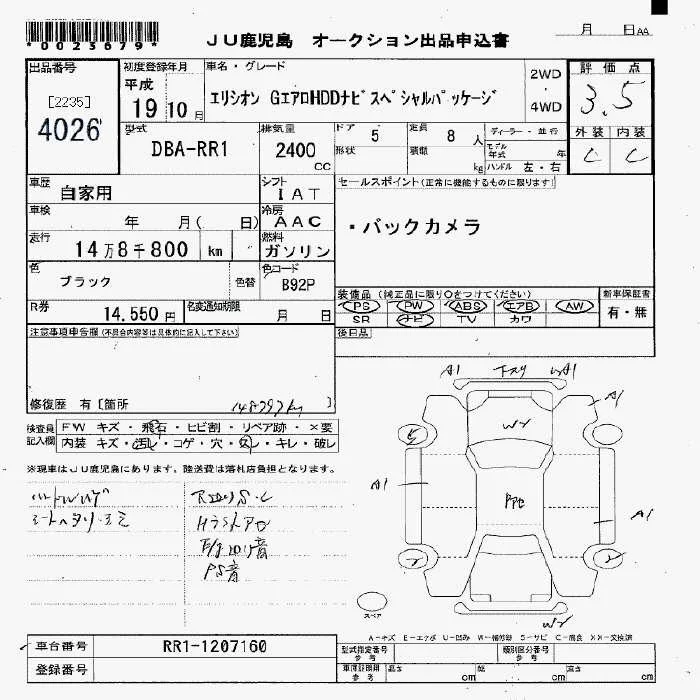 *0023679*
JU鹿児島 オークション出品申込書
月 日AA
出品番号
[2235]
4026
初度登録年月
平成
19年10月
車名・グレード
エリシオン GエアロHDDナビスペシャルパッケージ
2WD
・
4WD
評価点
3.5
外装 内装
C C
型式
DBA-RR1
排気量
2400
CC
ドア 5
形状
定員 8人
積載 kg
ディーラー・並行
モデル年式 年
ハンドル 左・右
車歴
自家用
シフト
IAT
セールスポイント(正常に機能するものに限ります)
・バックカメラ
車検
年 月( 日)
冷房
AAC
走行
14万8千800 km
燃料
ガソリン
色
ブラック
色替
色コード
B92P
R券
14,550円
名変通知期限
月 日
装備品 (純正品に限り○をつけてください)
PS PW ABS エアB AW
SR ナビ TV カワ
新車保証書
有・無
後日品
注意事項申告欄(不具合内容等は具体的に記入して下さい)
修復歴 有 [箇所 ]
148797km
検査員記入欄
FW キズ・飛石・ヒビ割・リペア跡・×要
内装 キズ・汚レ・コゲ・穴・スレ・キレ・破レ
※現車はJU鹿児島にあります。陸送費は落札店負担となります。
PS音
A1
A1
A1
A1
A1
W2
W2
スペア
A-キズ E-エクボ U-凹み W-補修跡 S-サビ C-腐食 XX-交換済
車台番号 RR1-1207160
登録番号
型式指定番号
参考
類別区分番号
参考
車庫証明用
参考
長さ cm
幅 cm
高さ cm